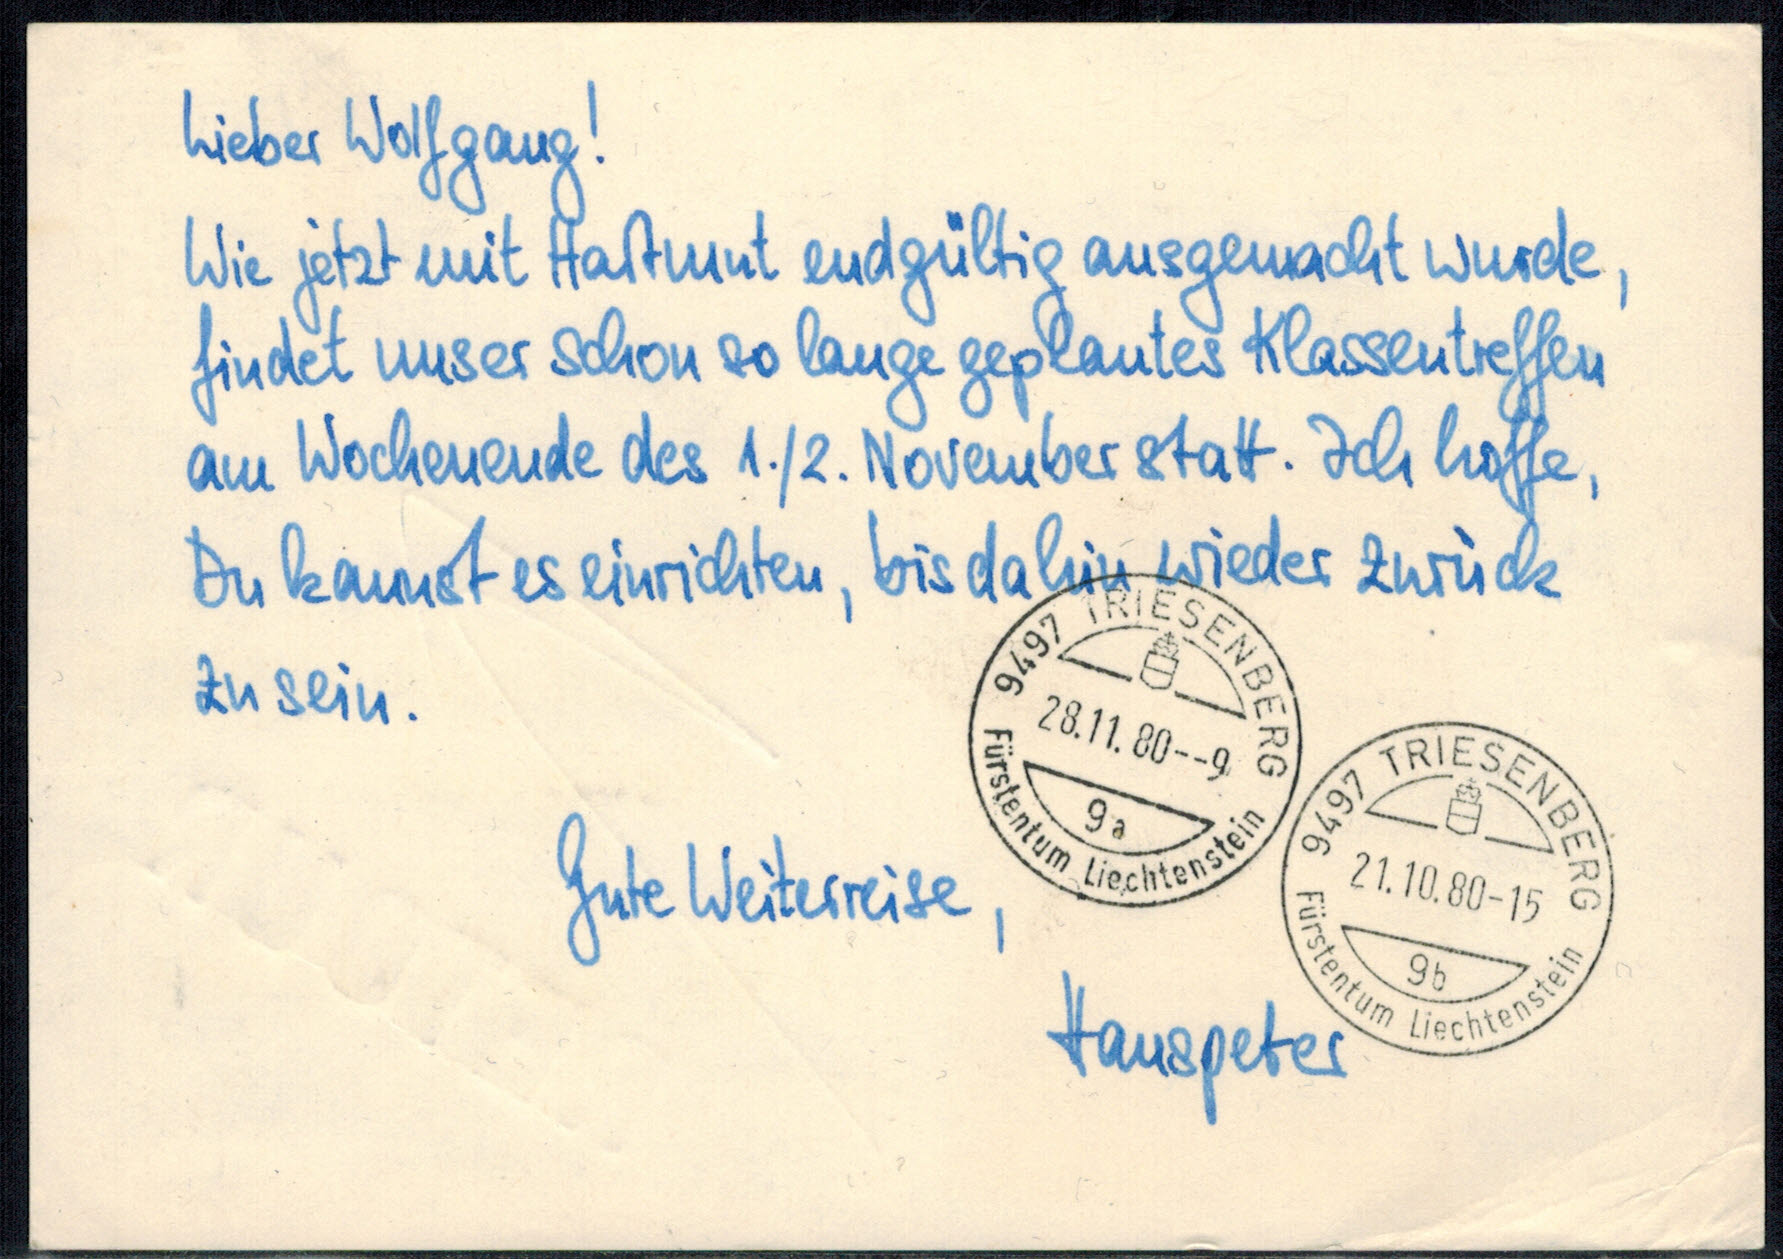 Lieber Wolfgang!
Wie jetzt mit Hartmut endgültig ausgemacht wurde,
findet unser schon so lange geplantes Klassentreffen
am Wochenende des 1./2. November statt. Ich hoffe,
Du kannst es einrichten, bis dahin wieder zurück
zu sein.
9497 TRIESENBERG
28.11.80--9
9a
Fürstentum Liechtenstein
9497 TRIESENBERG
21.10.80-15
9b
Fürstentum Liechtenstein
Gute Weiterreise,
Hanspeter